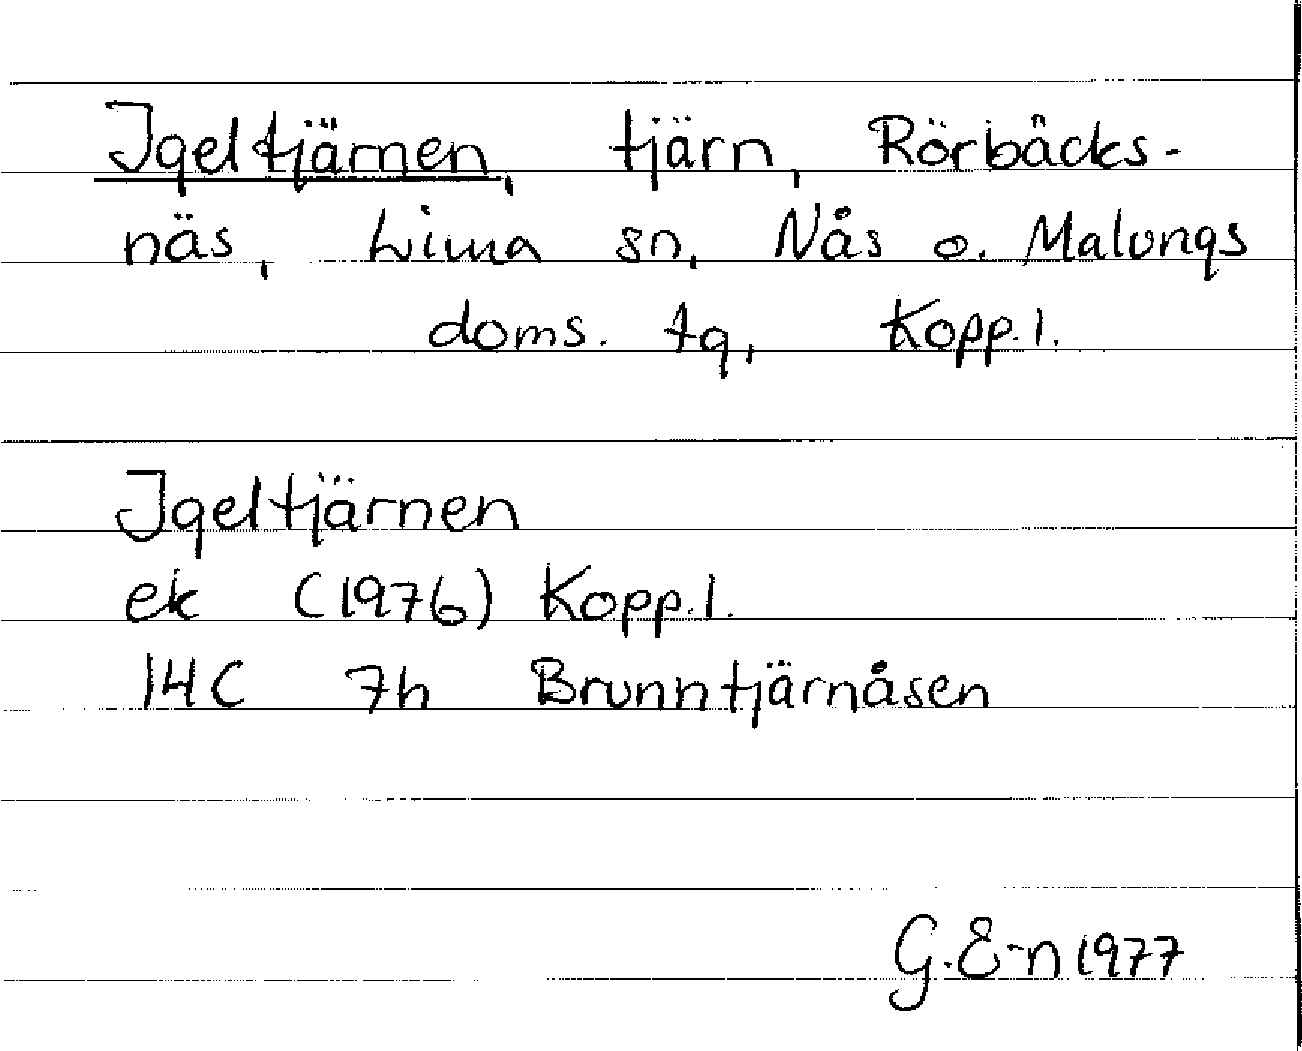 Igeltjärnen, tjärn, Rörbäcks-
näs, Lima sn, Nås o. Malungs
doms. tg, Kopp. l.
Igeltjärnen
ek (1976) Kopp. l.
14C 7h Brunntjärnåsen
G. E-n 1977